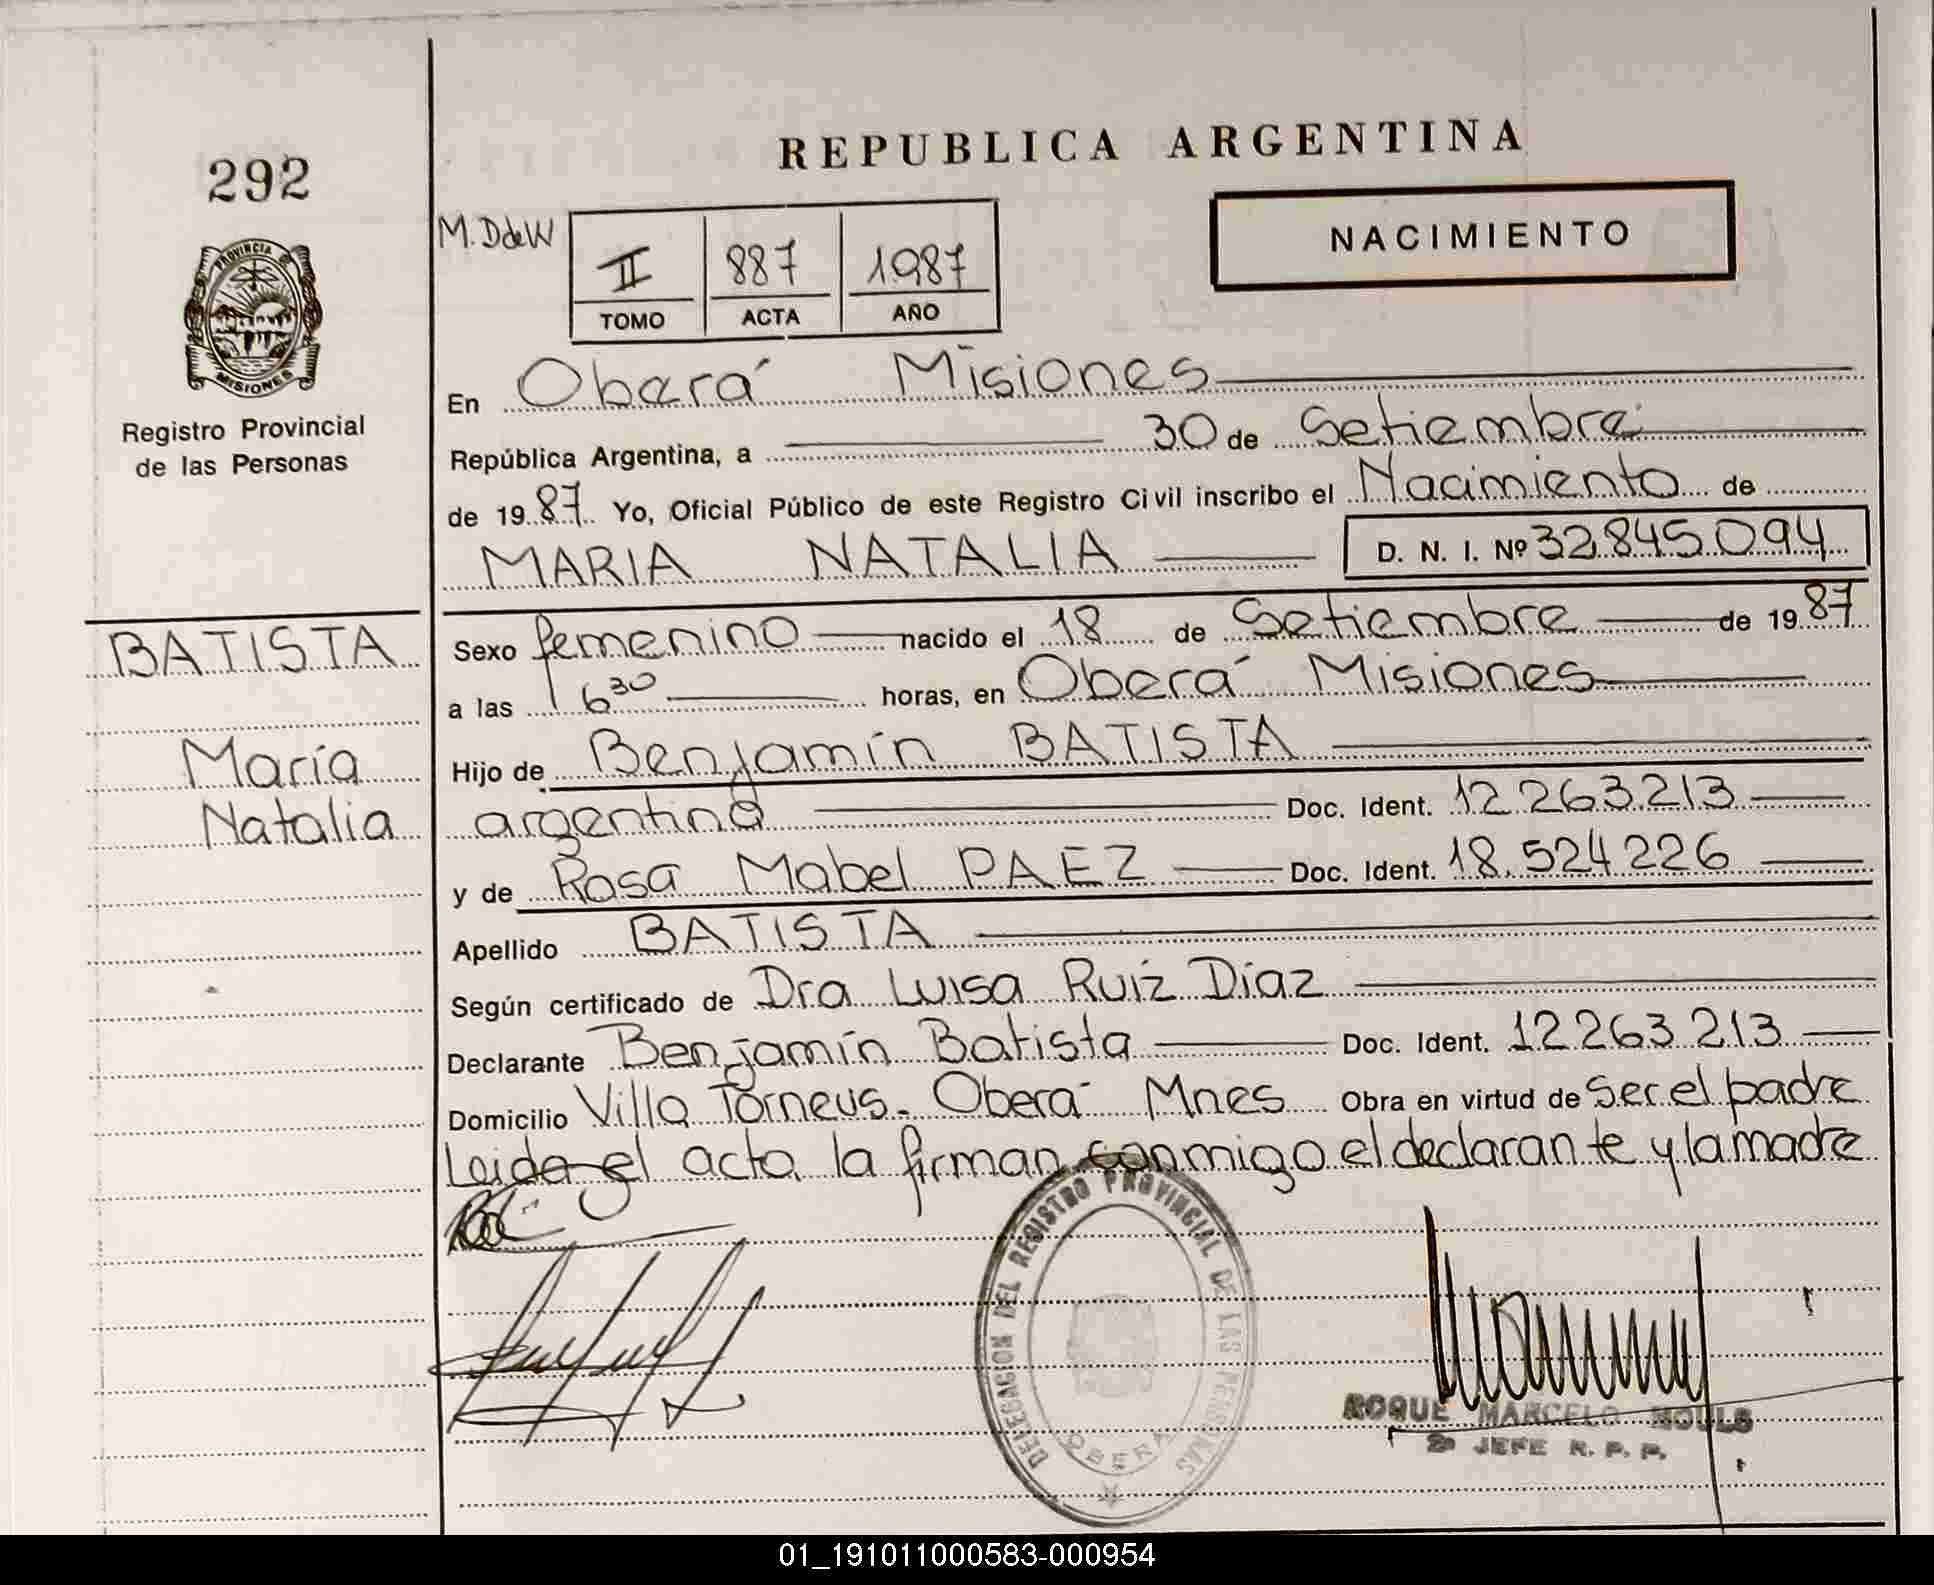 REPUBLICA ARGENTINA
292
M.DdeW
II 887 1987
TOMO ACTA AÑO
NACIMIENTO
PROVINCIA DE
MISIONES
Registro Provincial
de las Personas
En Oberá Misiones
República Argentina, a 30 de Setiembre
de 1987 Yo, Oficial Público de este Registro Civil inscribo el Nacimiento de
MARIA NATALIA D. N. I. Nº 32.845.094
BATISTA
María
Natalia
Sexo femenino nacido el 18 de Setiembre de 1987
a las 16 30 horas, en Oberá Misiones
Hijo de Benjamín BATISTA
argentina Doc. Ident. 12.263.213
y de Rosa Mabel PAEZ Doc. Ident. 18.524.226
Apellido BATISTA
Según certificado de Dra Luisa Ruiz Díaz
Declarante Benjamín Batista Doc. Ident. 12.263.213
Domicilio Villa Torneus. Oberá Mnes Obra en virtud de ser el padre
Leida el acta la firman conmigo el declarante y la madre
DELEGACION DEL REGISTRO PROVINCIAL DE LAS PERSONAS
OBERA
ROQUE MARCELO
2º JEFE R. P. P.
01_191011000583-000954